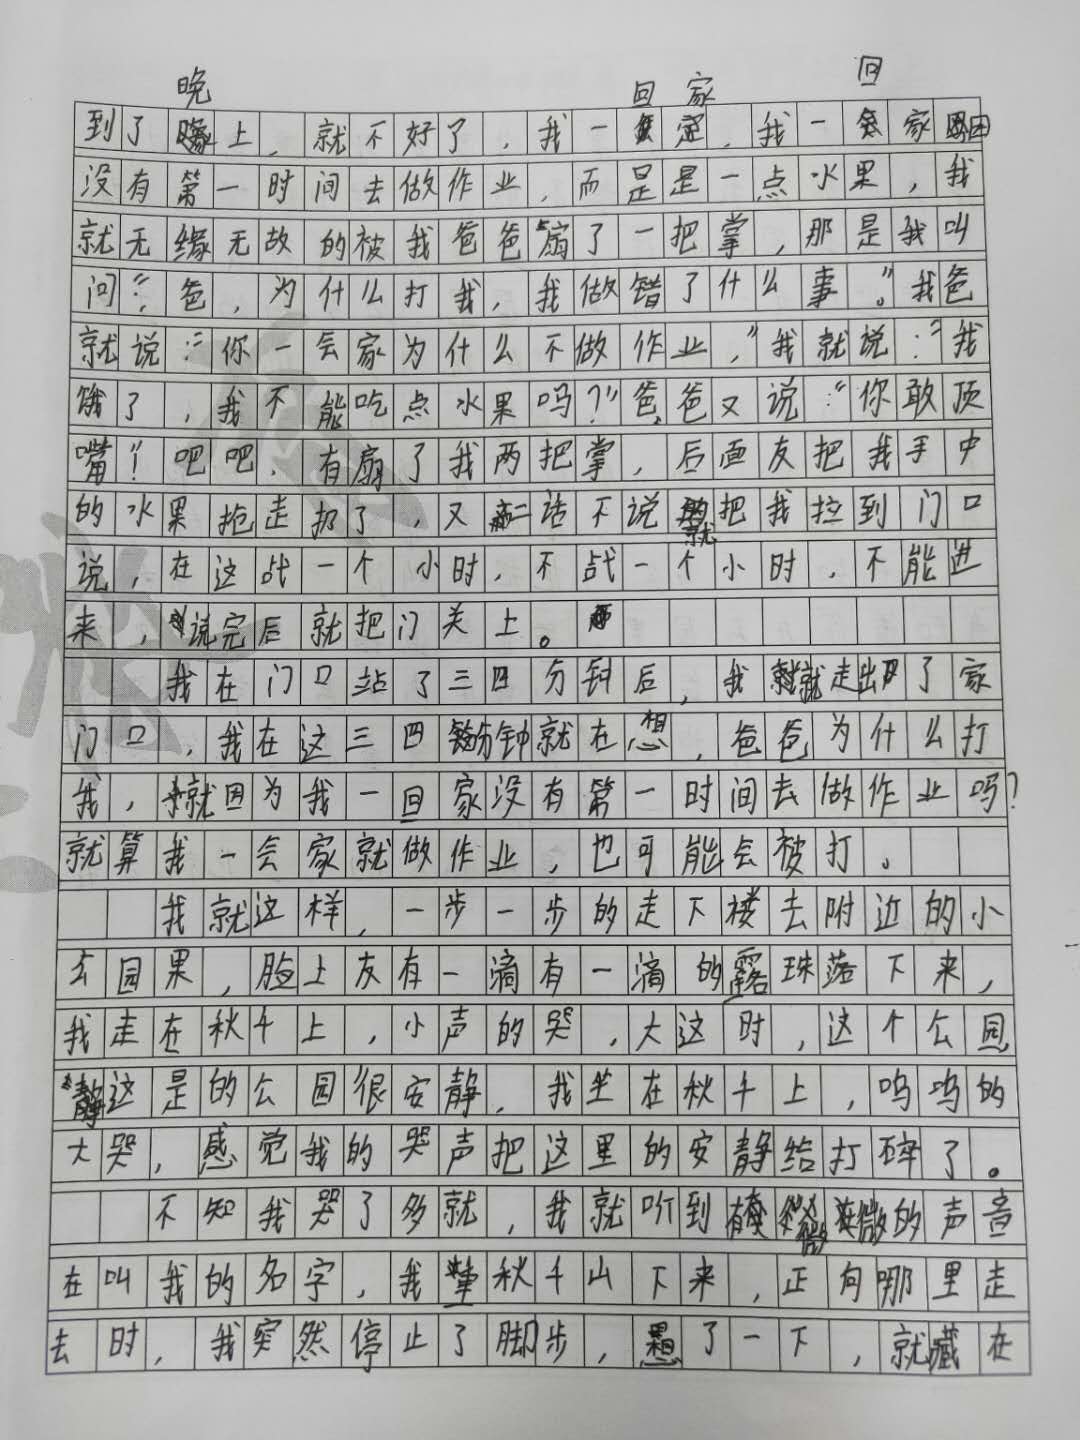 晚 回家 回
到了上,就不好了,我一定,我一家
没有第一时间去做作业,而是是一点水果,我
就无缘无故的被我爸爸扇了一把掌,那是我叫
问:“爸,为什么打我,我做错了什么事。”我爸
就说:“你一会家为什么不做作业,”我就说:“我
饿了,我不能吃点水果吗?”爸爸又说:“你敢顶
嘴!”吧吧.有扇了我两把掌,后面友把我手中
的水果抢走扔了,又二话不说就把我拉到门口
说,在这战一个小时,不战一个小时,不能进
来,说完后就把门关上。
我在门口站了三四分钟后,我就走出了家
门口,我在这三四分钟就在想,爸爸为什么打
我,就因为我一回家没有第一时间去做作业吗?
就算我一会家就做作业,也可能会被打。
我就这样,一步一步的走下楼去附近的小
去园果,脸上友有一滴有一滴的露珠落下来,
我走在秋千上,小声的哭,大这时,这个公园
静这是的公园很安静,我坐在秋千上,呜呜的
大哭,感觉我的哭声把这里的安静给打碎了。
不知我哭了多就,我就听到微微的声音
在叫我的名字,我秋千山下来,正向哪里走
去时,我突然停止了脚步,想了一下,就藏在